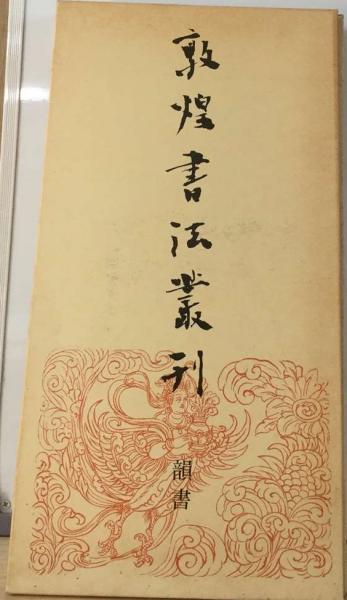 敦煌書法叢刊
韻書